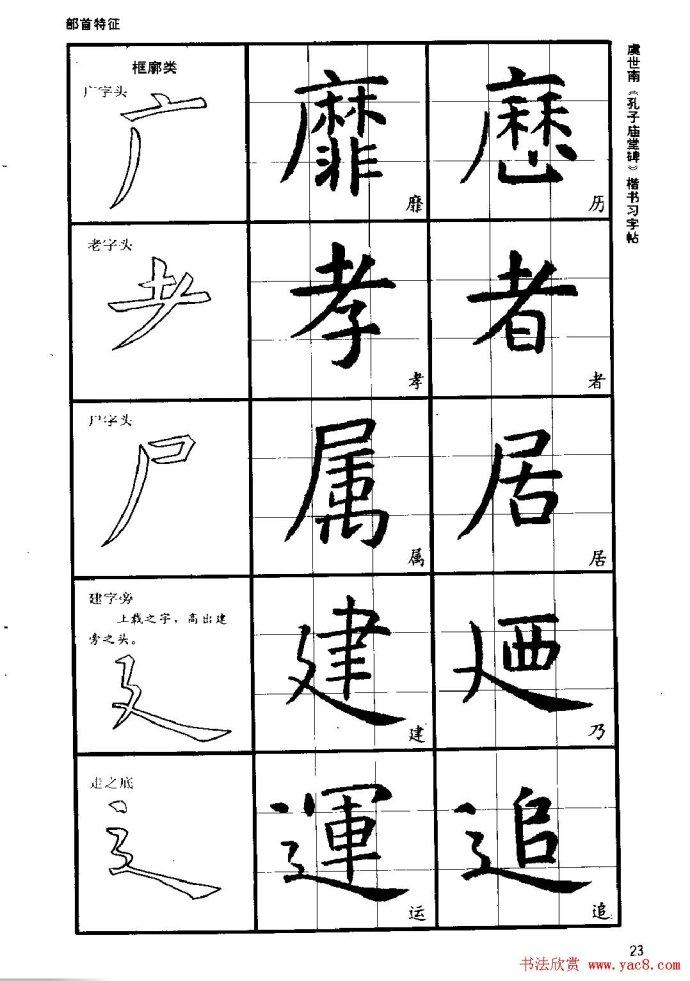 部首特征
虞世南《孔子庙堂碑》楷书习字帖
框廓类
广字头
广
靡
靡
歷
历
老字头
耂
孝
孝
者
者
尸字头
尸
属
属
居
居
建字旁
上载之字，高出建
旁之头。
廴
建
建
廼
乃
走之底
辶
運
运
追
追
23
书法欣赏 www.yac8.com